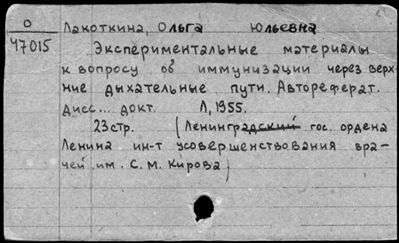 О
47015
Лакоткина, Ольга Юльевна
Экспериментальные материалы
к вопросу об иммунизации через верх-
ние дыхательные пути. Автореферат.
дисс... докт. Л, 1955.
23 стр. (Ленинградский гос. ордена
Ленина ин-т усовершенствования вра-
чей им. С. М. Кирова)